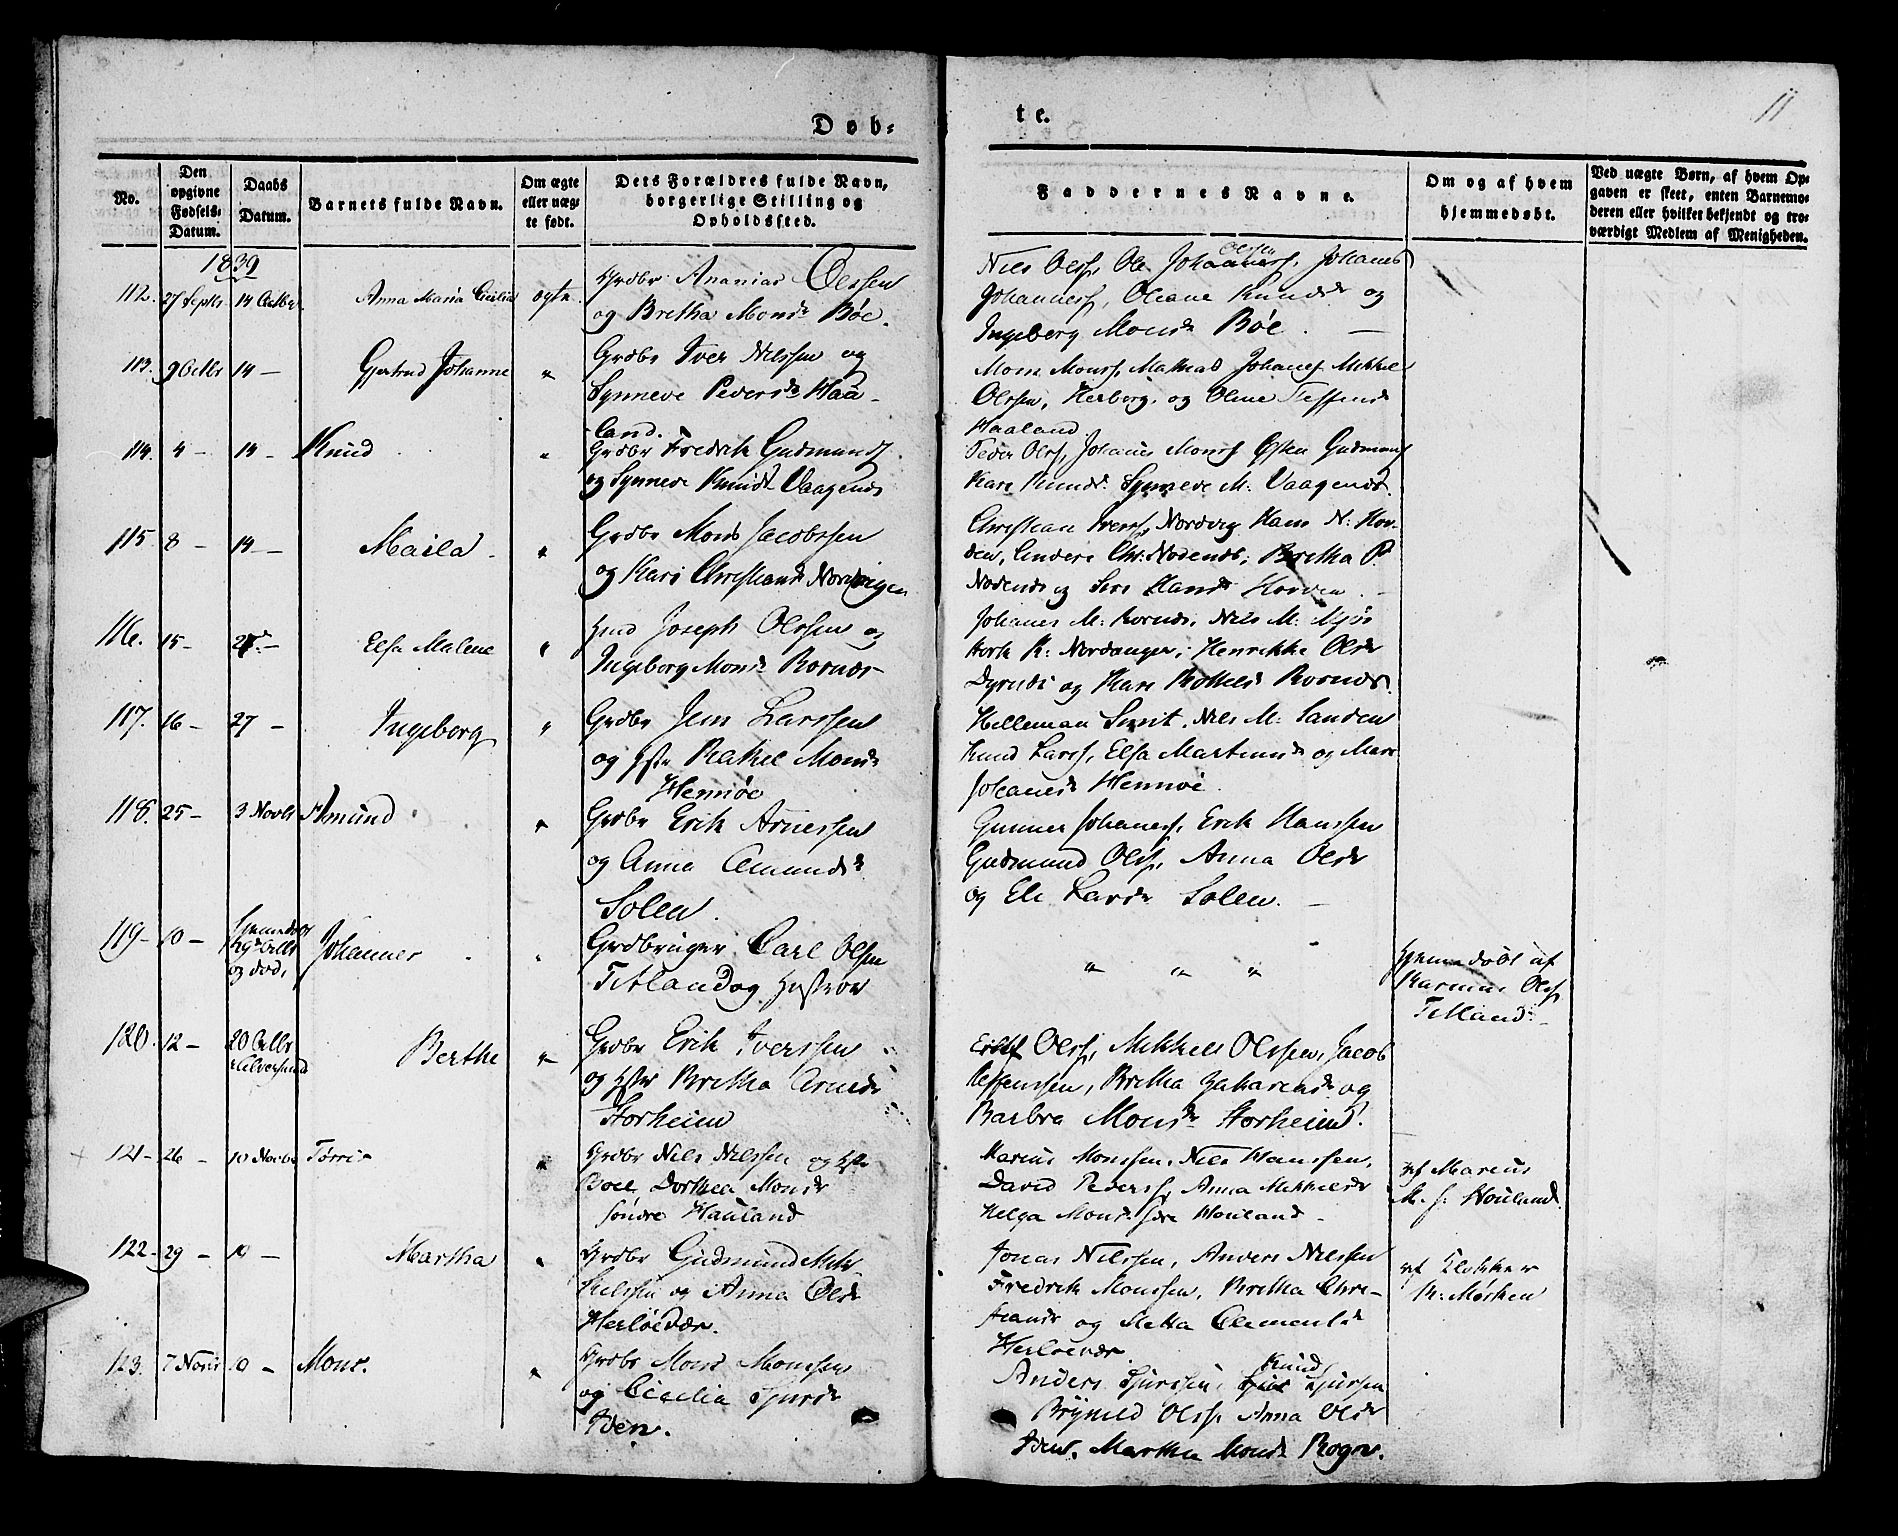 11
Døb-
te.
No.
Den opgivne Fødsels-Datum.
Daabs Datum.
Barnets fulde Navn.
Om ægte eller uæg-te født.
Dets Forældres fulde Navn, borgerlige Stilling og Opholdssted.
Faddernes Navne.
Om og af hvem hjemmedøbt.
Ved uægte Børn, af hvem Op-gaven er skeet, enten Barnemo-deren eller hvilket bekjendt og tro-værdigt Medlem af Menigheden.
1839
112. 27 Septbr 14 Octbr. Anna Maria Cicilia ægte. Grdbr Ananias Olssen
og Bretha Monsdr Bøe.
Nils Olss, Ole Olssen Johannes
Johanness, Oliane Knudsdr og
Ingeborg Monsdr Bøe. —
113. 9 Octbr 14 — Gjertrud Johanne " Grdbr Iver Nilssen og
Synneve Pedersdr Haa-
land.
Mons Monss, Mathias Johaness Mikkel
Olssen, Herborg og Oline Steffensdr
Haaland.
114. 4 — 14 - Knud " Grdbr Fredrik Gudmunds
og Synneve Knudsdr Vaagenes
Peder Olss, Johanes Monss Østen Gudmuns
Kari Knudsdr Synneve M: Vaagenes.
115 8 — 14 — Maila - " Grdbr Mons Jacobssen
og Kari Christiansdr Nordvigen
Christian Iverss, Nordvig Hans N: Hov-
den, Anders Chr: Nodenes; Bretha P.
Nodenes og Siri Hansdr Hovden. -
116. 15 - Elsa Malene " Hmd Joseph Olssen og
Ingeborg Monsdr Rosnæs
Johanes M: Rosnæs, Nils M: Mjøs
R: Nordanger; Henrikke Olsdr
og Kari Rosnæs.
117. 16 — 27 - Ingeborg " Grdbr Jens Larssen
og Hstr Rakel Monsdr
Hennøe
Helleman Smit, Nils M: Sanden
Knud Larss, Elsa Martinusdr og Mari
Johanesdr Hennøe.
118. 25 — 3 Novbr Amund " Grdbr Erik Arnessen
og Anna Amundsdr
Solem.
Gunner Johaness, Erik Hanssen
Gudmund Olss, Anna Olsdr
og Eli Larsdr Solem. —
119 — 10 — Hjemedøbt
og død, Johannes " Grdbruger Carl Olsen
Titland og Hustrue
" " "
Hjemedøbt af
Rasmus Olss
Titland. -
120. 12 — 20 Octbr
i Alversund Berthe " Grdbr Erik Iverssen
og Hstr Bretha Arnesdr
Storheim
Olss, Mikkel Olssen, Jacob
Steffenssen, Bretha Zakariasdr og
Barbra Monsdr Storheim.
121 — 26 — 10 Novbr Tørris " Grdbr Nils Nilssen og Hstr
Boel Dorthea Monsdr
søndre Hauland
Marius Monssen, Nils Hanssen,
David Pederss, Anna Mikkelsdr
Helga Monsdr Sdre Houland -
af Marius
M. S. Houland.
122 — 29 — 10 — Martha " Grdbr Gudmund Mik-
kelssen og Anna Olsdr
Herløevær.
Jonas Nilssen, Anders Nilssen
Fredrik Monssen, Bretha Chri-
stiansdr og Metta Clementsdr
Herløevær
af Klokker
R: Mjøsken
123. 7 Novbr 10 — Mons. " Grdbr Mons Monssen
og Cicelia Sjursdr
Iden.
Anders Sjurssen, Knud Sjursen
Brynild Olss, Anna Olsdr
Iden. Martha Monsdr Rogn.